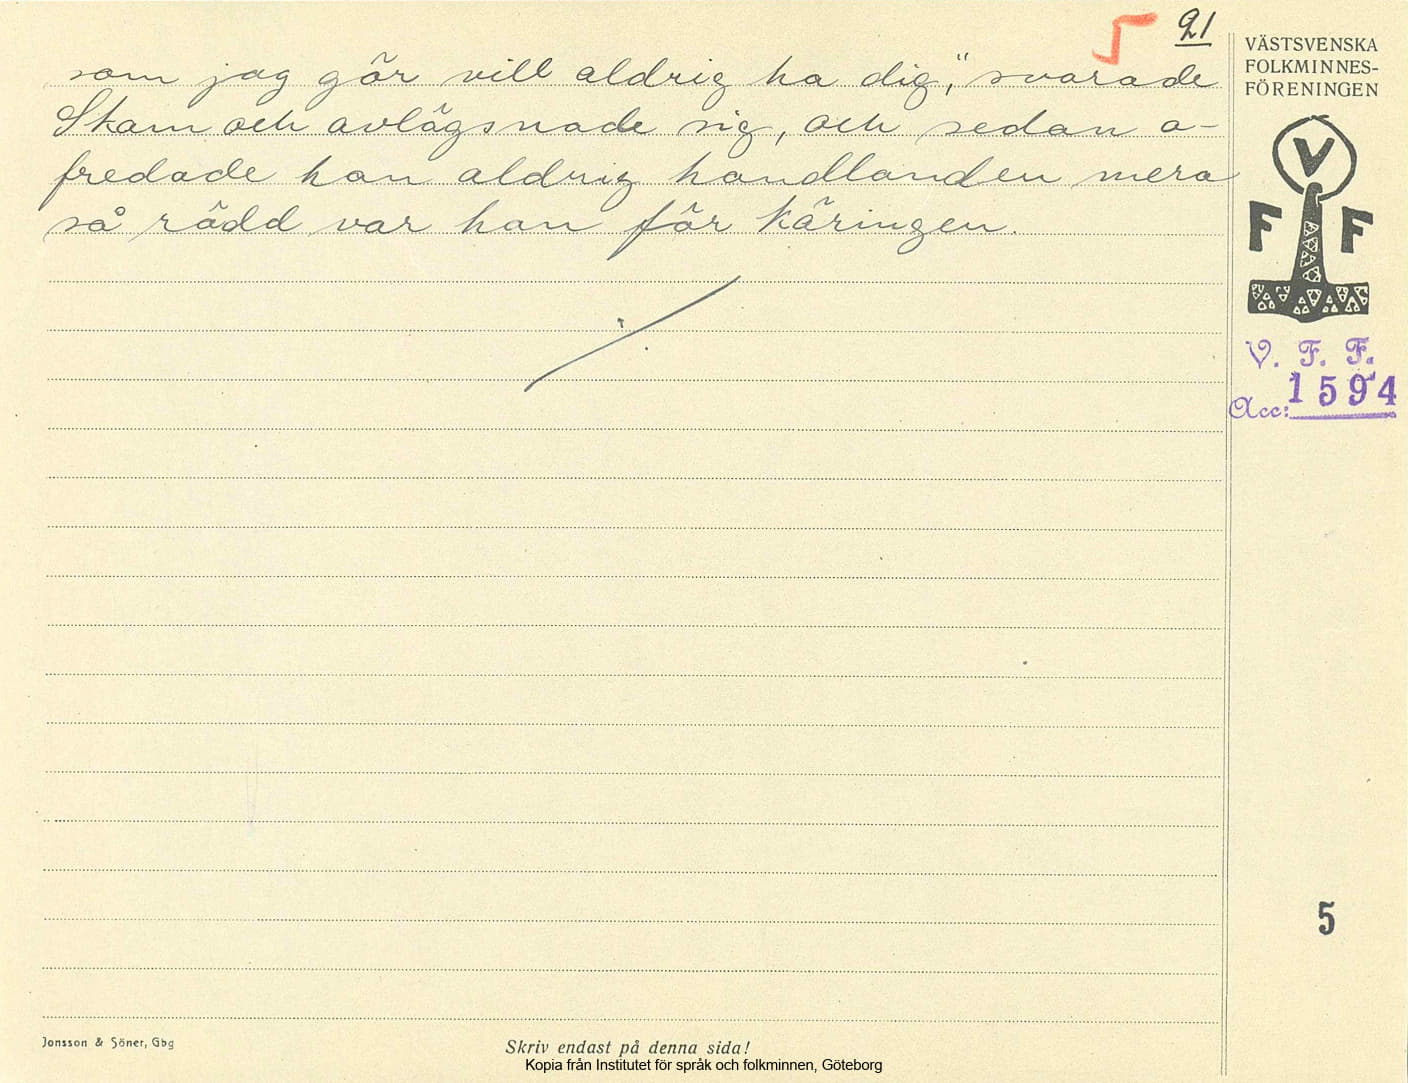 5 21
som jag gör vill aldrig ha dig,” svarade
Skam och avlägsnade sig, och sedan o-
fredade han aldrig handlanden mera
så rädd var han för käringen.
VÄSTSVENSKA
FOLKMINNES-
FÖRENINGEN
V
F F
V. F. F.
Acc: 1594
5
Jonsson & Söner, Gbg
Skriv endast på denna sida!
Kopia från Institutet för språk och folkminnen, Göteborg